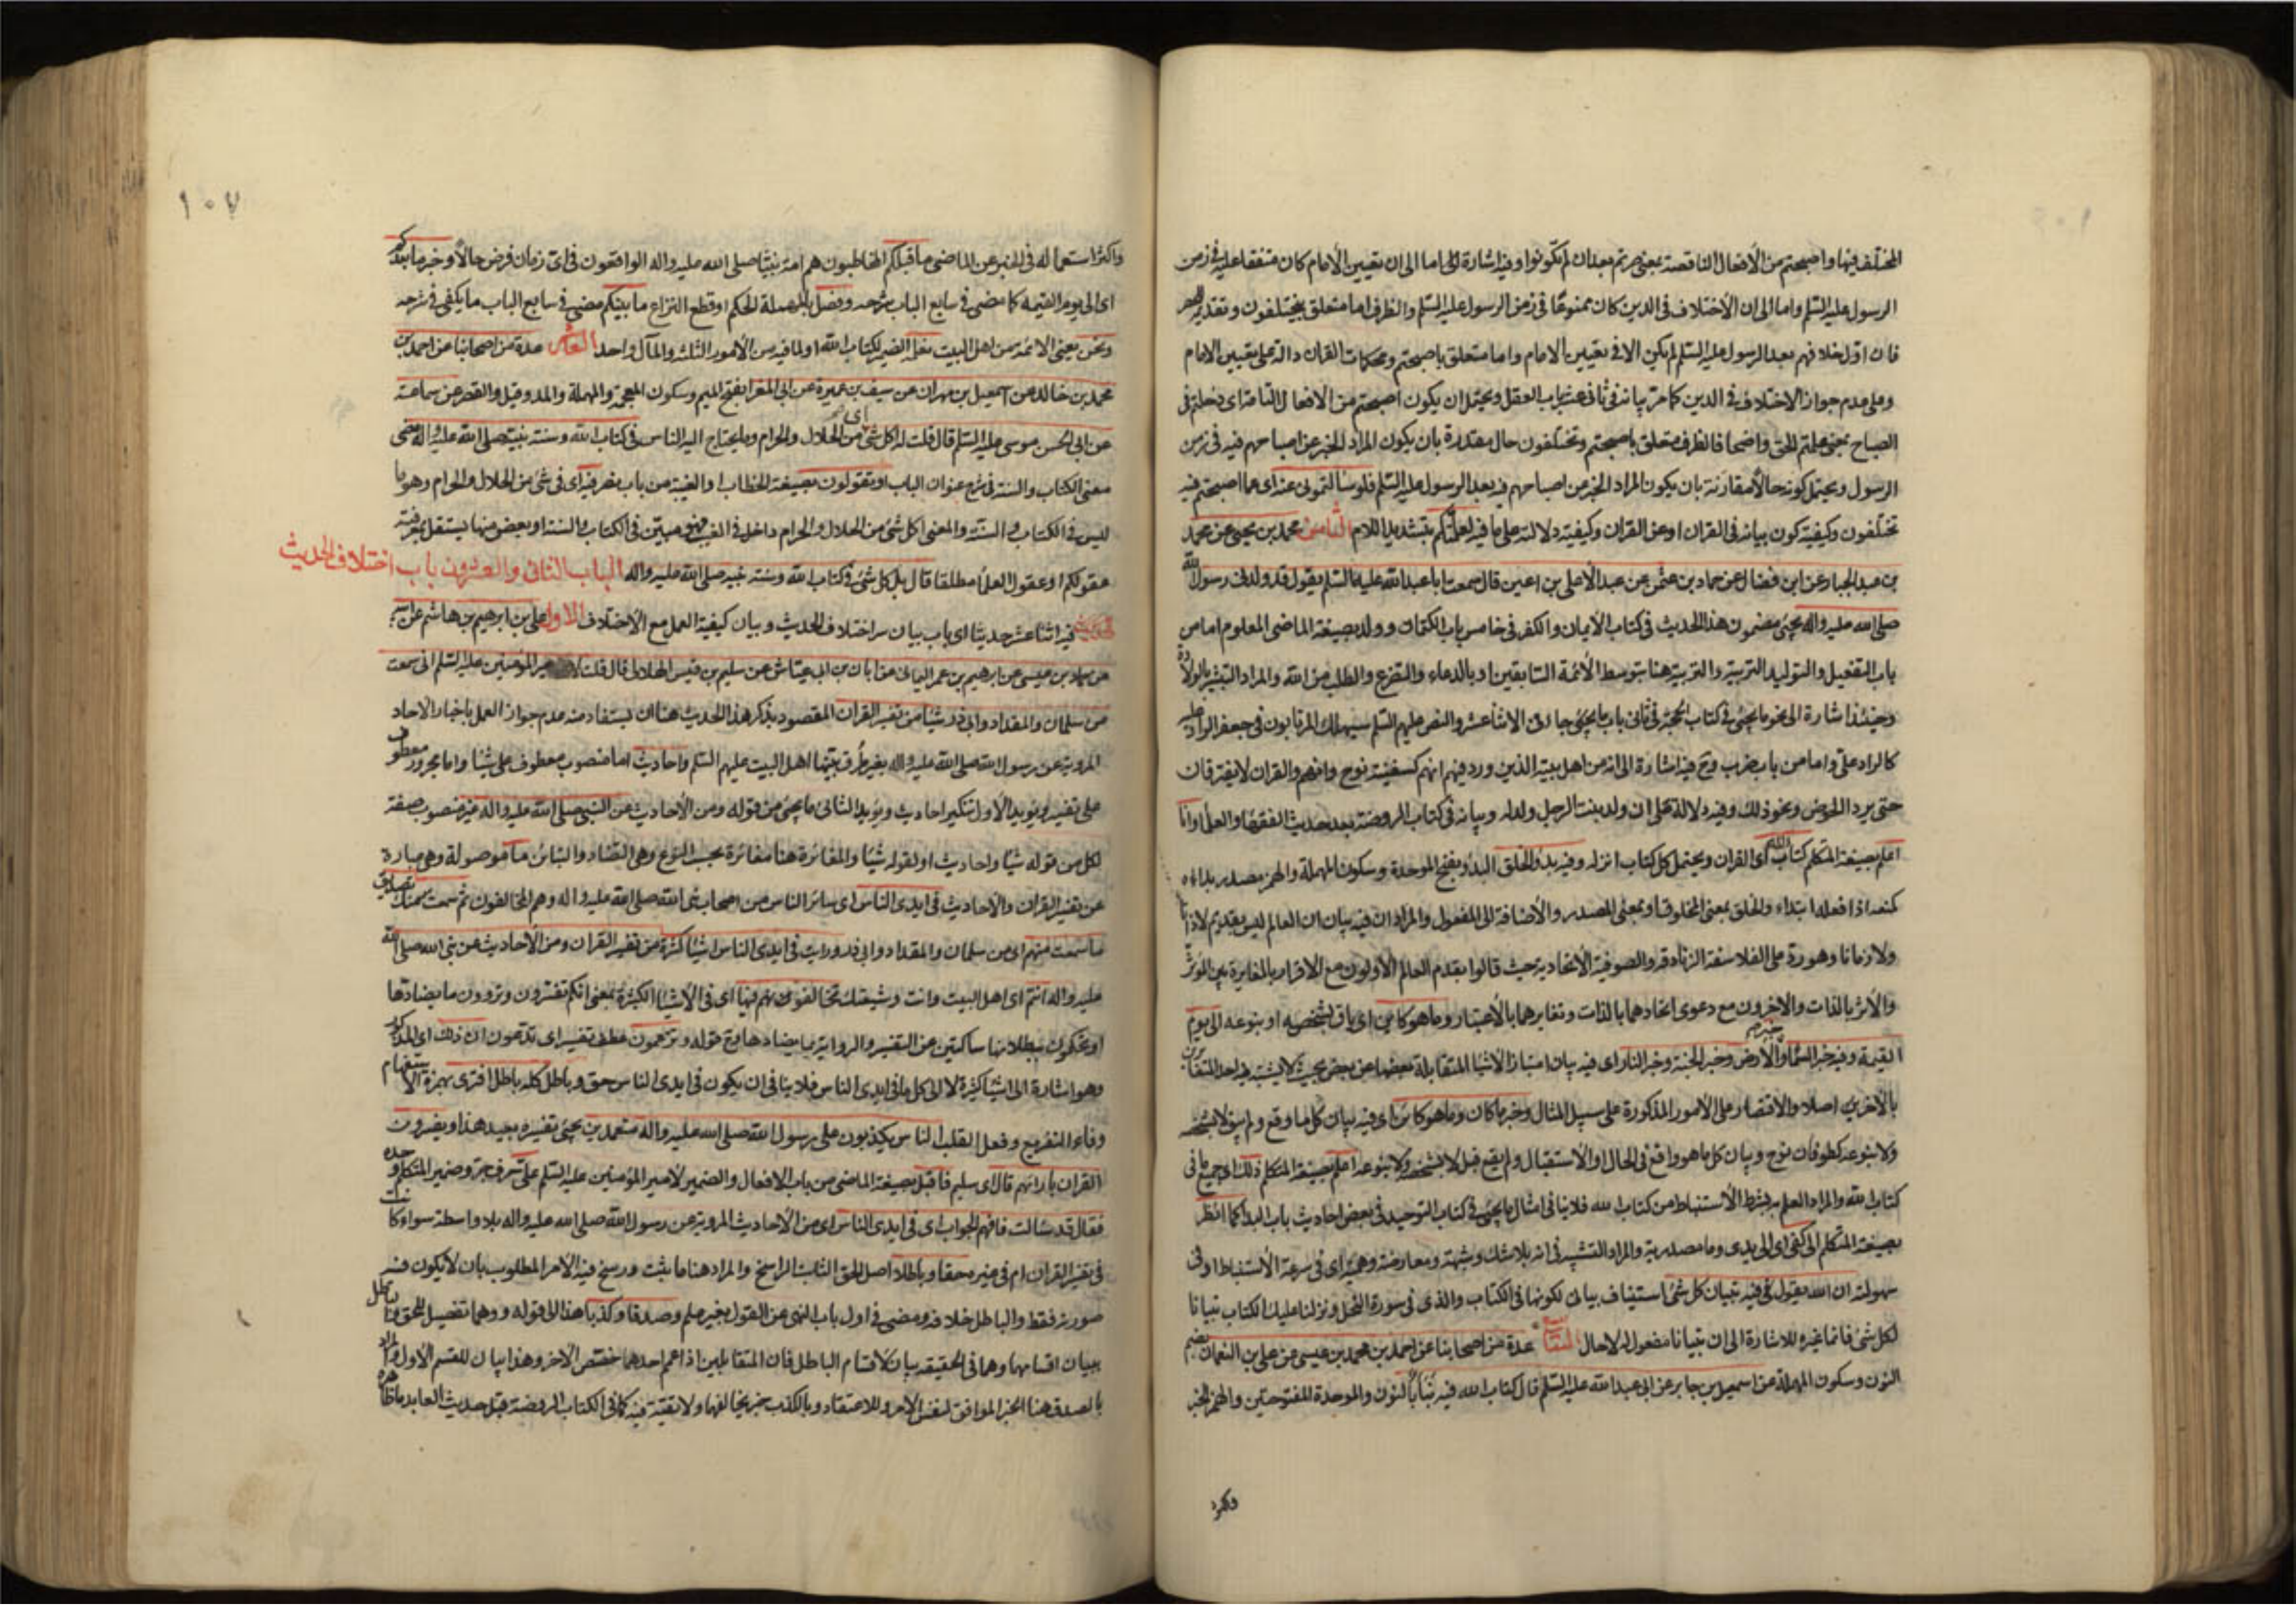 المختلف فيها واصبحتم من الأفعال الناقصة بمعنى صرتم بعد ان لم تكونوا وفيه اشارة الى اما الى ان تعيين الأمام كان متفقا عليه في زمن
الرسول عليه السّلم واما الى ان الأختلاف في الدين كان ممنوعًا في زمن الرسول عليه السّلم والظرف اما متعلق بتختلفون وتقديمه للحصر
فان اوّل خلافهم بعد الرسول عليه السّلم لم يكن الا في تعيين الامام واما متعلق باصبحتم ومحكمات القران دالة على تعيين الامام
وعلى عدم جواز الاختلاف في الدين كما مرّ بيانه في ثاني عشر باب العقل ويحتمل ان يكون اصبحتم من الافعال التامة اى دخلتم في
الصباح بمعنى علمتم الحق واضحا فالظرف متعلق باصبحتم وتختلفون حال مقدرة بان يكون المراد الخبر عن اصباحهم فيه في زمن
الرسول ويحتمل كونه حالاً مقارنة بان يكون المراد الخبر عن اصباحهم فيه بعد الرسول عليه السّلم فلو سألتموني عنه اى عما اصبحتم فيه
تختلفون وكيفية كون بيانه في القران او عن القران وكيفية دلالته على ما فيه لعلّمتكم بتشديد اللام الثامن محمد بن يحيى عن محمد
بن عبد الجبار عن ابن فضال عن حماد بن عثمن عن عبد الأعلى بن اعين قال سمعت ابا عبد الله عليه السّلم يقول قد ولدنى رسول الله
صلى الله عليه واله يجيئ مضمون هذا الحديث في كتاب الأيمان والكفر في خامس باب الكتمان وولد بصيغة الماضي المعلوم اما من
باب التفعيل والتوليد التربية والتربية هنا بتوسط الأئمة السابقين او بالدعاء والتضرع والطلب من الله والمراد التبشير بالولادة
وحينئذ اشارة الى نحو ما يجيئ في كتاب الحجة في ثاني باب ما يجئ جا في الاثنا عشر والنص عليهم السّلم سيهلك المرتابون في جعفر الراد عليه
كالراد علىّ واما من باب ضرب وفيه اشارة الى انه من اهل بيته الذين ورد فيهم انهم كسفينة نوح وانهم والقران لا يفترقان
حتى يردا الحوض ونحو ذلك وفيه دلالة على ان ولد بنت الرجل ولد له وبيانه في كتاب الروضة بعد حديث الفقهاء والعلماء وانا
اعلم بصيغة المتكلم كتاب الله اى القران ويحتمل كل كتاب انزله وفيه بدؤ الخلق البدؤ بفتح الموحدة وسكون المهملة والهمز مصدر بداءه
كمنعه اذا فعله ابتداء والخلق بمعنى المخلوق او بمعنى المصدر والأضافة الى المفعول والمراد ان فيه بيان ان العالم ليس بقديم لا ذاتا
ولا زمانا وهو ردّ على الفلاسفة الزنادقة والصوفية الأتحادية حيث قالوا بقدم العالم الأولون مع الاقرار بالمغايرة بين المؤثّر
والأثر بالذات والاخرون مع دعوى اتحادهما بالذات وتغايرهما بالأعتبار وما هو كاين اى باق بشخصه او بنوعه الى يوم
القيمة وفيه خبر السماء والأرض وخبر الجنة وخبر النار اى فيه بيان امتياز الأشياء المتقابلة بعضها عن بعض بحيث لا يشتبه خبر احد المتقابلين
بالاخرى اصلا والاقتصار على الامور المذكورة على سبيل المثال وخبر ما كان وما هو كائن اى فيه بيان كل ما وقع ولم يبق لا بشخصه
ولا بنوعه كطوفان نوح وبيان كل ما هو واقع في الحال او الاستقبال ولم يقع قبل لا بشخصه ولا بنوعه اعلم بصيغة المتكلم ذلك اى جميع ما في
كتاب الله والمراد العلم بشرط الأستنباط من كتاب الله فلا ينافي امثال ما يجئ في كتاب التوحيد في بعض احاديث باب البدا كما انظر
بصيغة المتكلم الى كفى اى الى يدى وما مصدرية والمراد التشبيه في انه بلا شك وشبهة ومعارضة وهمية اى في سرعة الأستنباط او في
سهولته ان الله يقول فيه تبيان كل شئ استيناف بياني لكونها في الكتاب والذى في سورة النحل ونزلنا عليك الكتاب تبيانا
لكل شئ فانما غيره للاشارة الى ان تبيانا مفعول له لا حال التاسع عدة من اصحابنا عن احمد بن محمد بن عيسى عن على بن النعمان بضم
النون وسكون المهملة عن اسمعيل بن جابر عن ابى عبد الله عليه السّلم قال كتاب الله فيه نبأ بالنون والموحدة المفتوحتين والهمز الخبر
واكثر استعماله في الخبر عن الماضى ما قبلكم المخاطبون هم امة نبينا صلى الله عليه واله الواقعون في اى زمان فرض حالاً وخبر ما بعدكم
اى الى يوم القيمة كما مضى في سابع الباب شرحه وفصل بالمهملة الحكم او قطع النزاع ما بينكم مضى في سابع الباب ما يكفى في شرحه
ونحن يعنى الائمة من اهل البيت نعلمه الضمير لكتاب الله او لما فيه من الأمور الثلثة والمآل واحد العاشر عدة من اصحابنا عن احمد بن
محمد بن خالد عن اسمعيل بن مهران عن سيف بن عميرة عن ابى المغرا بفتح الميم وسكون المعجمة والمهملة والمد وقيل والقصر عن سماعة
عن ابى الحسن موسى عليه السّلم قال قلت له اكل شئ اى من الحلال والحرام وما يحتاج اليه الناس في كتاب الله وسنة نبيه صلى الله عليه واله مضى
معنى الكتاب والسنة في شرح عنوان الباب او تقولون بصيغة الخطاب او الغيبة من باب نصر فيه اى في شئ من الحلال والحرام وهو ما
ليس في الكتاب والسنة والمعنى اكل شئ من الحلال والحرام داخل في الغيب فهو مبيّن في الكتاب والسنة او بعض منها يستقل بمعرفته
عقولكم او عقول العلماء مطلقا قال بل كل شئ في كتاب الله وسنة نبيه صلى الله عليه واله الباب الثانى والعشرون باب اختلاف الحديث
فيه اثنا عشر حديثا اى باب بيان سر اختلاف الحديث وبيان كيفية العمل مع الأختلاف الاول على بن ابرهيم بن هاشم عن ابيه
عن حماد بن عيسى عن ابرهيم بن عمر اليمانى عن ابان بن ابى عياش عن سليم بن قيس الهلالى قال قلت لأمير المؤمنين عليه السّلم انى سمعت
من سلمان والمقداد وابى ذر شيئا من تفسير القران المقصود بذكر هذا الحديث هنا ان يستفاد منه عدم جواز العمل باخبار الاحاد
المروية عن رسول الله صلى الله عليه واله بغير طرق بيتها اهل البيت عليهم السّلم واحاديث اما منصوب معطوف على شيئا واما مجرور معطوف
على تفسير ويؤيد الأول تنكير احاديث ويؤيد الثانى ما يجئ من قوله ومن الأحاديث عن النبى صلى الله عليه واله غير منصوب صفة
لكل من قوله شيئا واحاديث او لقوله شيئا والمغائرة هنا مغائرة بحسب النوع وهى التضاد والتباين ما موصولة وهى عبارة
عن تفسير القران والأحاديث في ايدى الناس اى سائر الناس من اصحاب نبى الله صلى الله عليه واله وهم المخالفون ثم سمعت منك تصديق
ما سمعت منهم اى من سلمان والمقداد وابى ذر ورايت في ايدى الناس اشياء كثيرة من تفسير القران ومن الأحاديث عن نبى الله صلى الله
عليه واله انتم اى اهل البيت وانت وشيعتك تخالفونهم فيها اى في الأشياء الكثيرة بمعنى انكم تفسرون وتروون ما يضادها
او تحكمون ببطلانها ساكتين عن التفسير والرواية بما يضادها وقوله وتزعمون عطف تفسير اى تدعون ان ذلك اى المذكور
وهو اشارة الى اشياء كثيرة لا الى كل ما في ايدى الناس فلا ينافى ان يكون في ايدى الناس حق وباطل كله باطل افترى بهمزة الاستفهام
وفاء التفريع وفعل القلب الناس يكذبون على رسول الله صلى الله عليه واله متعمدين يجئ تفسيره بعيد هذا ويفسرون
القران بارائهم قال اى سليم فاقبل بصيغة الماضى من باب الافعال والضمير لأمير المؤمنين عليه السّلم علىّ حرف جر وضمير المتكلم وحده
فقال قد سئالت فافهم الجواب اى في ايدى الناس اى من الأحاديث المروية عن رسول الله صلى الله عليه واله بلا واسطة سواء كانت
في تفسير القران ام في غيره حقا وباطلا اصل الحق الثابت الراسخ والمراد هنا ما يثبت ورسخ فيه الأمر المطلوب بان لا يكون فيه
صورته فقط والباطل خلافه ومضى في اول باب النهى عن القول بغير علم وصدقا وكذبا هذا الى قوله ووهما تفصيل للحق والباطل
ببيان اقسامها وهما في الحقيقة بيان لأقسام الباطل فان المتقابلين اذا عمم احدهما خصص الاخر وهذا بيان للقسم الأول والمراد
بالصدق هنا الخبر الموافق لنفس الأمر وللاعتقاد وبالكذب خبر يخالفهما ولا تقية فيه كما في الكتاب الروضة قبل حديث العابد ما ظاهره